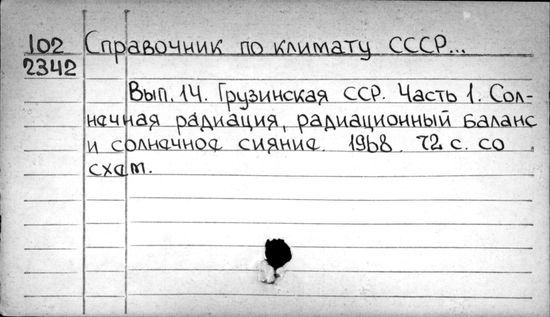 102 Справочник по климату СССР...
2342
Вып. 14. Грузинская ССР. Часть 1. Сол-
нечная радиация, радиационный баланс
и солнечное сияние. 1968. 72 с. со
схем.